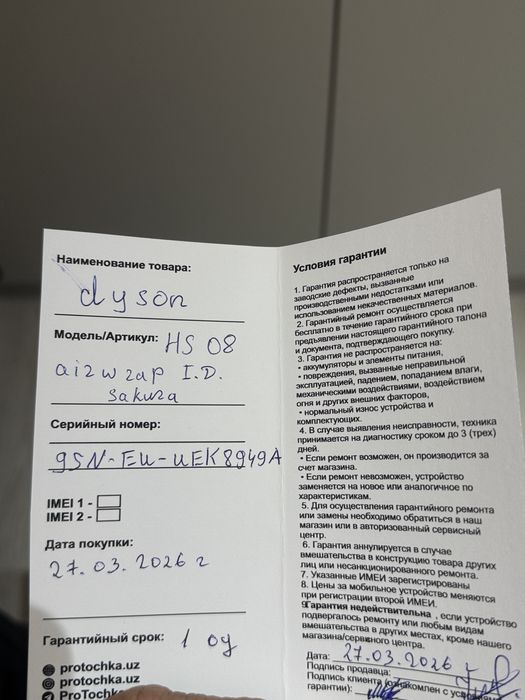 Наименование товара:
dyson
Модель/Артикул: HS 08
airwrap I.D.
sakura
Серийный номер:
9SN-EU-UEK8949A
IMEI 1 -
IMEI 2 -
Дата покупки:
27.03.2026 г
Гарантийный срок: 1 оу
protochka.uz
protochka.uz
ProTochk
Условия гарантии
1. Гарантия распространяется только на
заводские дефекты, вызванные
производственными недостатками или
использованием некачественных материалов.
2. Гарантийный ремонт осуществляется
бесплатно в течение гарантийного срока при
предъявлении настоящего гарантийного талона
и документа, подтверждающего покупку.
3. Гарантия не распространяется на:
• аккумуляторы и элементы питания,
• повреждения, вызванные неправильной
эксплуатацией, падением, попаданием влаги,
механическими воздействиями, воздействием
огня и других внешних факторов,
• нормальный износ устройства и
комплектующих.
4. В случае выявления неисправности, техника
принимается на диагностику сроком до 3 (трех)
дней.
• Если ремонт возможен, он производится за
счет магазина.
• Если ремонт невозможен, устройство
заменяется на новое или аналогичное по
характеристикам.
5. Для осуществления гарантийного ремонта
или замены необходимо обратиться в наш
магазин или в авторизованный сервисный
центр.
6. Гарантия аннулируется в случае
вмешательства в конструкцию товара других
лиц или несанкционированного ремонта.
7. Указанные IMEI зарегистрированы
8. Цены за мобильное устройство меняются
при регистрации второй IMEI.
9 Гарантия недействительна, если устройство
подвергалось ремонту или любым видам
вмешательства в других местах, кроме нашего
магазина/сервисного центра.
Дата: 27.03.2026 г
Подпись продавца:
Подпись клиента (ознакомлен с условиями
гарантии):